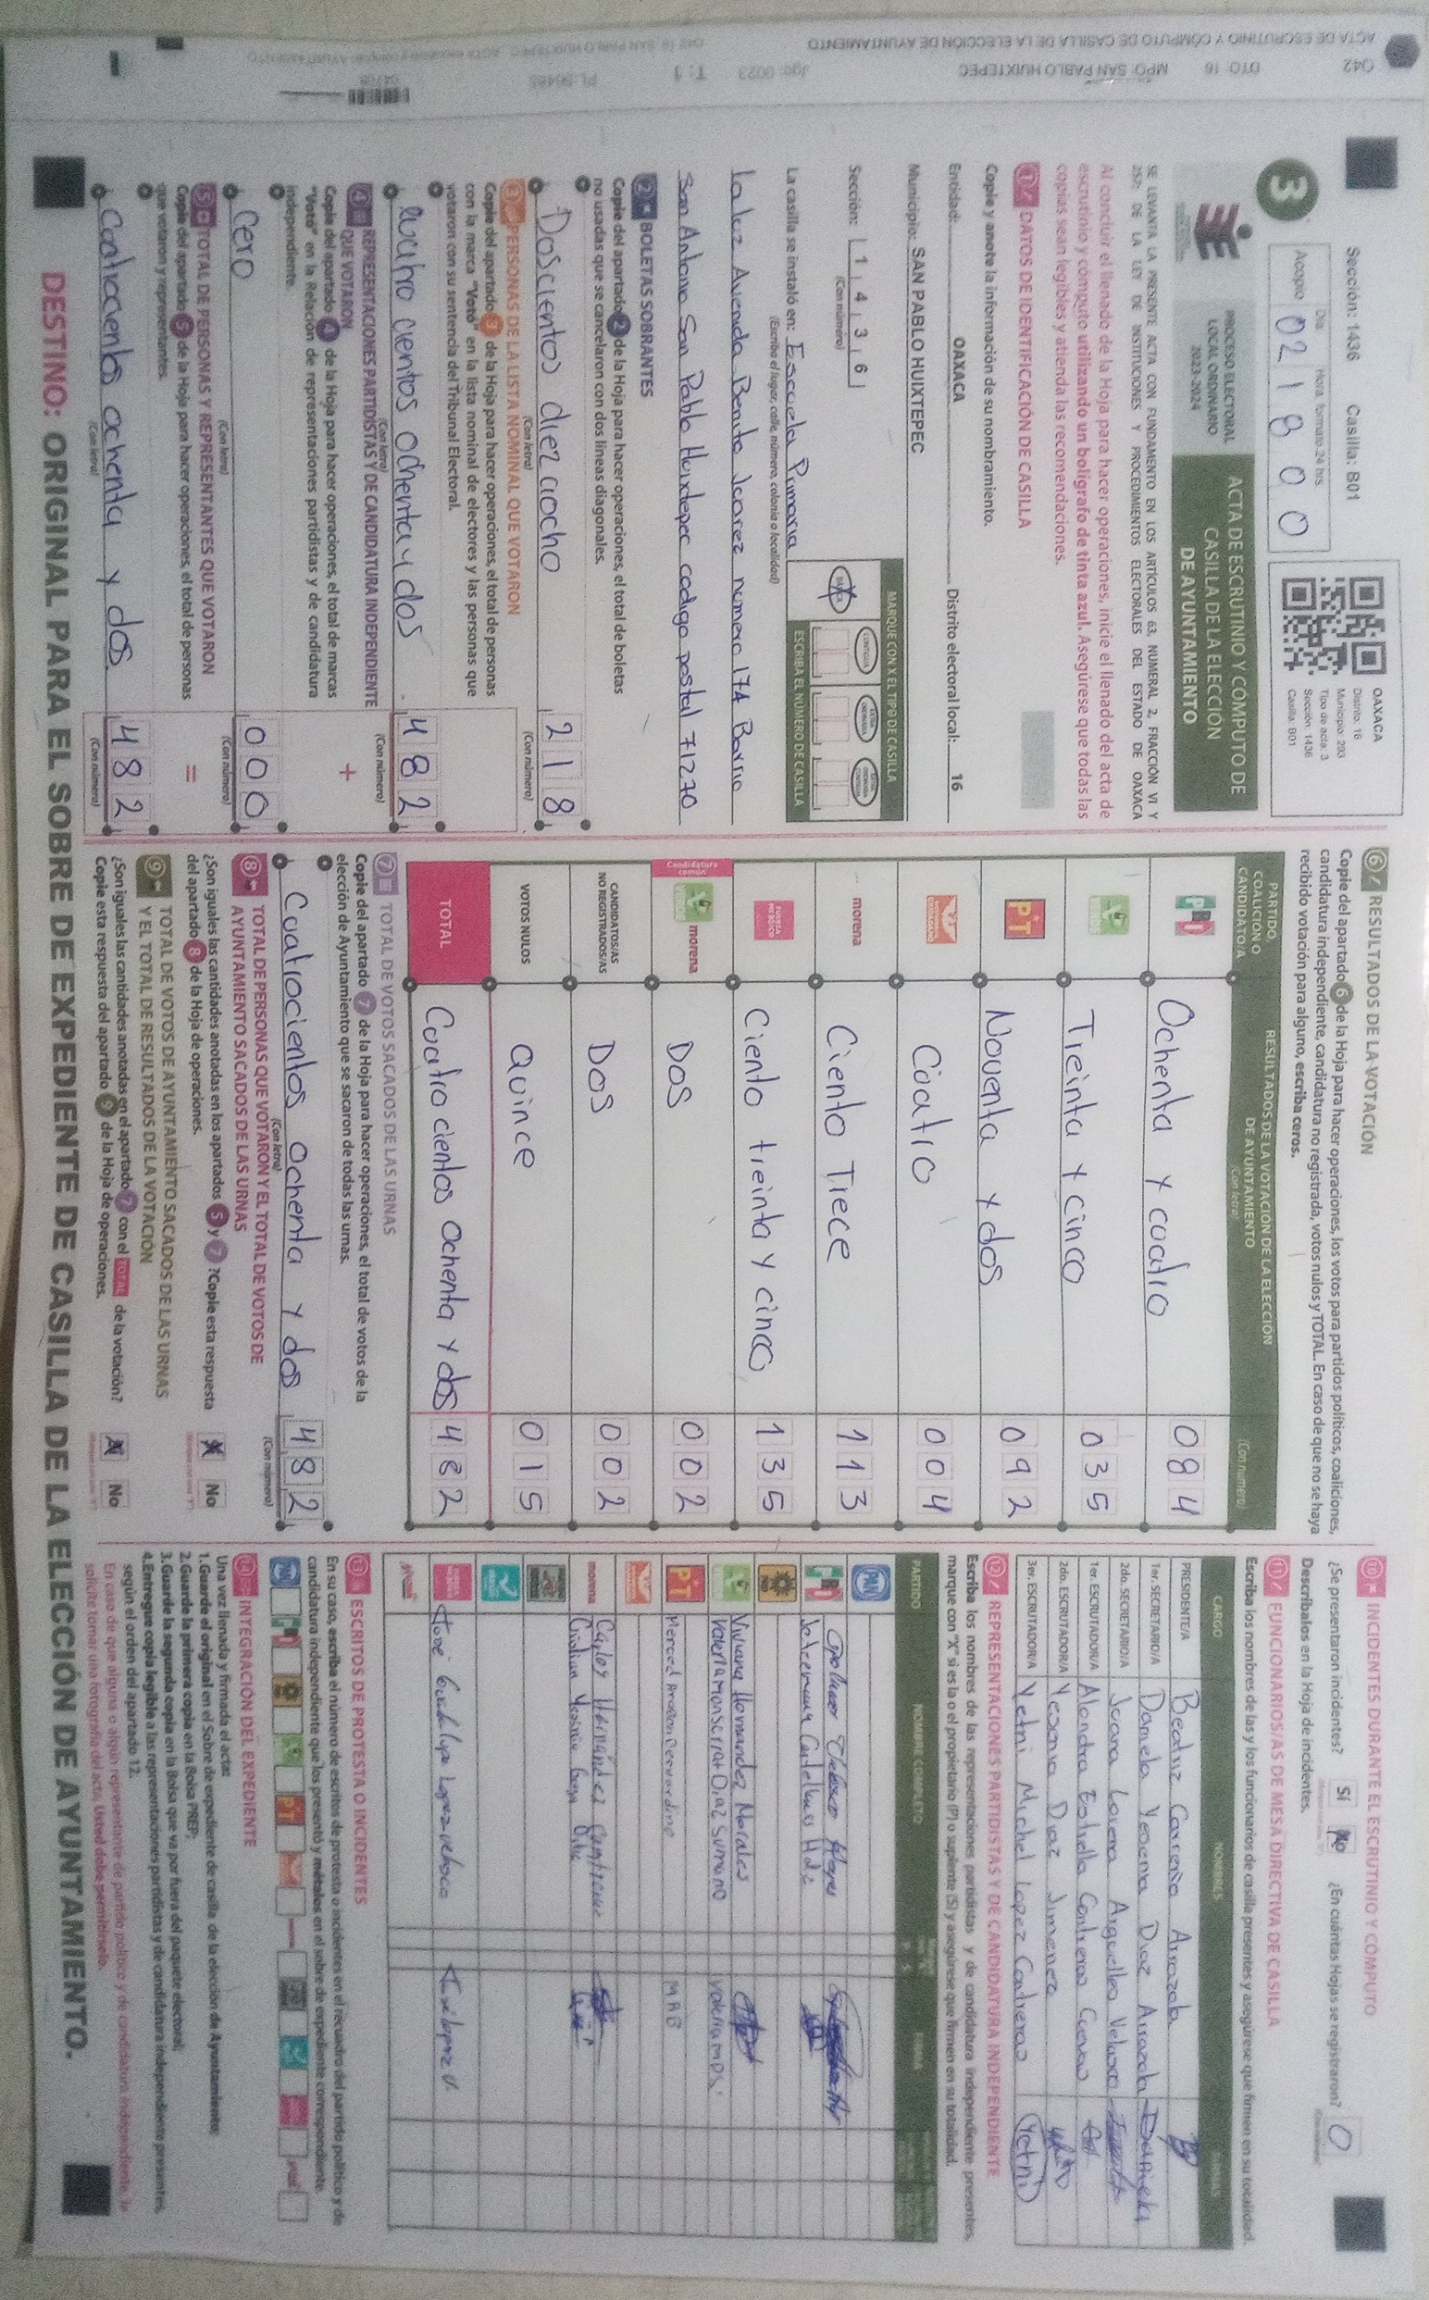 Sección: 1436 Casilla: B01
Día Hora, formato 24 hrs
Acopio 02 1800
3
OAXACA
Distrito: 16
Municipio: 293
Tipo de acta: 3
Sección: 1436
Casilla: B01
PROCESO ELECTORAL
LOCAL ORDINARIO
2023-2024
ACTA DE ESCRUTINIO Y CÓMPUTO DE
CASILLA DE LA ELECCIÓN
DE AYUNTAMIENTO
SE LEVANTA LA PRESENTE ACTA CON FUNDAMENTO EN LOS ARTÍCULOS 63, NUMERAL 2, FRACCIÓN VI Y
252; DE LA LEY DE INSTITUCIONES Y PROCEDIMIENTOS ELECTORALES DEL ESTADO DE OAXACA
Al concluir el llenado de la Hoja para hacer operaciones, inicie el llenado del acta de
escrutinio y cómputo utilizando un bolígrafo de tinta azul. Asegúrese que todas las
copias sean legibles y atienda las recomendaciones.
1 DATOS DE IDENTIFICACIÓN DE CASILLA
Copie y anote la información de su nombramiento.
Entidad: OAXACA Distrito electoral local: 16
Municipio: SAN PABLO HUIXTEPEC
Sección: 1 4 3 6
(Con número)
MARQUE CON X EL TIPO DE CASILLA
ESCRIBA EL NÚMERO DE CASILLA
La casilla se instaló en: Escuela Primaria
(Escriba el lugar, calle, número, colonia o localidad)
la luz Avenida Benito Juarez numero 17A Barrio
San Antonio San Pablo Huixtepec codigo postal 71270
2 BOLETAS SOBRANTES
Copie del apartado 2 de la Hoja para hacer operaciones, el total de boletas
no usadas que se cancelaron con dos líneas diagonales.
Doscientos diez aocho 218
(Con letra) (Con número)
3 PERSONAS DE LA LISTA NOMINAL QUE VOTARON
Copie del apartado 3 de la Hoja para hacer operaciones, el total de personas
con la marca "Votó" en la lista nominal de electores y las personas que
votaron con su sentencia del Tribunal Electoral.
cuatro cientos ochenta y dos 482
(Con letra) (Con número)
4 REPRESENTACIONES PARTIDISTAS Y DE CANDIDATURA INDEPENDIENTE
QUE VOTARON
Copie del apartado 4 de la Hoja para hacer operaciones, el total de marcas
"Votó" en la Relación de representaciones partidistas y de candidatura
independiente.
+
Cero 000
(Con letra) (Con número)
5 TOTAL DE PERSONAS Y REPRESENTANTES QUE VOTARON
Copie del apartado 5 de la Hoja para hacer operaciones, el total de personas
que votaron y representantes.
=
Cuatrocientos ochenta y dos. 482
(Con letra) (Con número)
6 RESULTADOS DE LA VOTACIÓN
Copie del apartado 6 de la Hoja para hacer operaciones, los votos para partidos políticos, coaliciones,
candidatura independiente, candidatura no registrada, votos nulos y TOTAL. En caso de que no se haya
recibido votación para alguno, escriba ceros.
PARTIDO,
COALICIÓN O
CANDIDATO/A
RESULTADOS DE LA VOTACIÓN DE LA ELECCIÓN
DE AYUNTAMIENTO
(Con letra) (Con número)
PRI Ochenta y cuatro 084
Treinta y cinco 035
PT Noventa y dos 092
Cuatro 004
morena Ciento Trece 113
FUERZA MÉXICO Ciento treinta y cinco 135
Candidatura común morena Dos 002
CANDIDATOS/AS
NO REGISTRADOS/AS Dos 002
VOTOS NULOS Quince 015
TOTAL Cuatro cientos Ochenta y dos 482
7 TOTAL DE VOTOS SACADOS DE LAS URNAS
Copie del apartado 7 de la Hoja para hacer operaciones, el total de votos de la
elección de Ayuntamiento que se sacaron de todas las urnas.
Cuatrocientos Ochenta y dos 482
(Con letra) (Con número)
8 TOTAL DE PERSONAS QUE VOTARON Y EL TOTAL DE VOTOS DE
AYUNTAMIENTO SACADOS DE LAS URNAS
¿Son iguales las cantidades anotadas en los apartados 5 y 7? Copie esta respuesta
del apartado 8 de la Hoja de operaciones.
No
9 TOTAL DE VOTOS DE AYUNTAMIENTO SACADOS DE LAS URNAS
Y EL TOTAL DE RESULTADOS DE LA VOTACIÓN
¿Son iguales las cantidades anotadas en el apartado 7 con el TOTAL de la votación?
Copie esta respuesta del apartado 9 de la Hoja de operaciones.
No
10 INCIDENTES DURANTE EL ESCRUTINIO Y CÓMPUTO
¿Se presentaron incidentes? Sí No ¿En cuántas Hojas se registraron? 0
Descríbalos en la Hoja de incidentes.
11 FUNCIONARIOS/AS DE MESA DIRECTIVA DE CASILLA
Escriba los nombres de las y los funcionarios de casilla presentes y asegúrese que firmen en su totalidad.
CARGO NOMBRES FIRMAS
PRESIDENTE/A Beatriz Carreño Arrazola
1er. SECRETARIO/A Daniela Yesenia Diaz Arrazola Daniela
2do. SECRETARIO/A Juana Lorena Arguelles Velasco
1er. ESCRUTADOR/A Alondra Estrella Contreras Cuevas
2do. ESCRUTADOR/A Yesenia Diaz Jimenez
3er. ESCRUTADOR/A Yetni Michel Lopez Contreras Yetni
12 REPRESENTACIONES PARTIDISTAS Y DE CANDIDATURA INDEPENDIENTE
Escriba los nombres de las representaciones partidistas y de candidatura independiente presentes,
marque con "X" si es la o el propietario (P) o suplente (S) y asegúrese que firmen en su totalidad.
PARTIDO NOMBRE COMPLETO FIRMA
PAN
PRI
PRD
Viviana Hernandez Morales
Valeria Monserrat Diaz Sumano Valeria MDS
PT Merced Aragon Bernardino MAB
morena Carlos Hernández
José Guadalupe Lopez Velasco
13 ESCRITOS DE PROTESTA O INCIDENTES
En su caso, escriba el número de escritos de protesta o incidentes en el recuadro del partido político y de
candidatura independiente que los presentó y métalos en el sobre de expediente correspondiente.
14 INTEGRACIÓN DEL EXPEDIENTE
Una vez llenada y firmada el acta:
1.Guarde el original en el Sobre de expediente de casilla de la elección de Ayuntamiento;
2.Guarde la primera copia en la Bolsa PREP;
3.Guarde la segunda copia en la Bolsa que va por fuera del paquete electoral;
4.Entregue copia legible a las representaciones partidistas y de candidatura independiente presentes,
según el orden del apartado 12.
En caso de que alguna o algún representante de partido político y de candidatura independiente, le
solicite tomar una fotografía del acta, Usted debe permitírselo.
DESTINO: ORIGINAL PARA EL SOBRE DE EXPEDIENTE DE CASILLA DE LA ELECCIÓN DE AYUNTAMIENTO.
042 DTO: 16 MPO: SAN PABLO HUIXTEPEC Jgo: 0023 T: 1
ACTA DE ESCRUTINIO Y CÓMPUTO DE CASILLA DE LA ELECCIÓN DE AYUNTAMIENTO